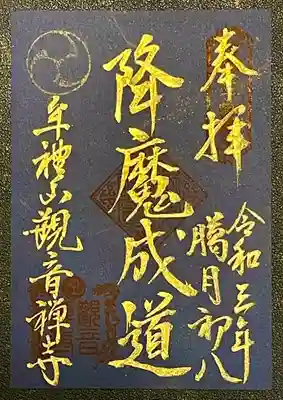 奉拝
令和三年
臘月初八
降魔成道
牟禮山觀音禅寺